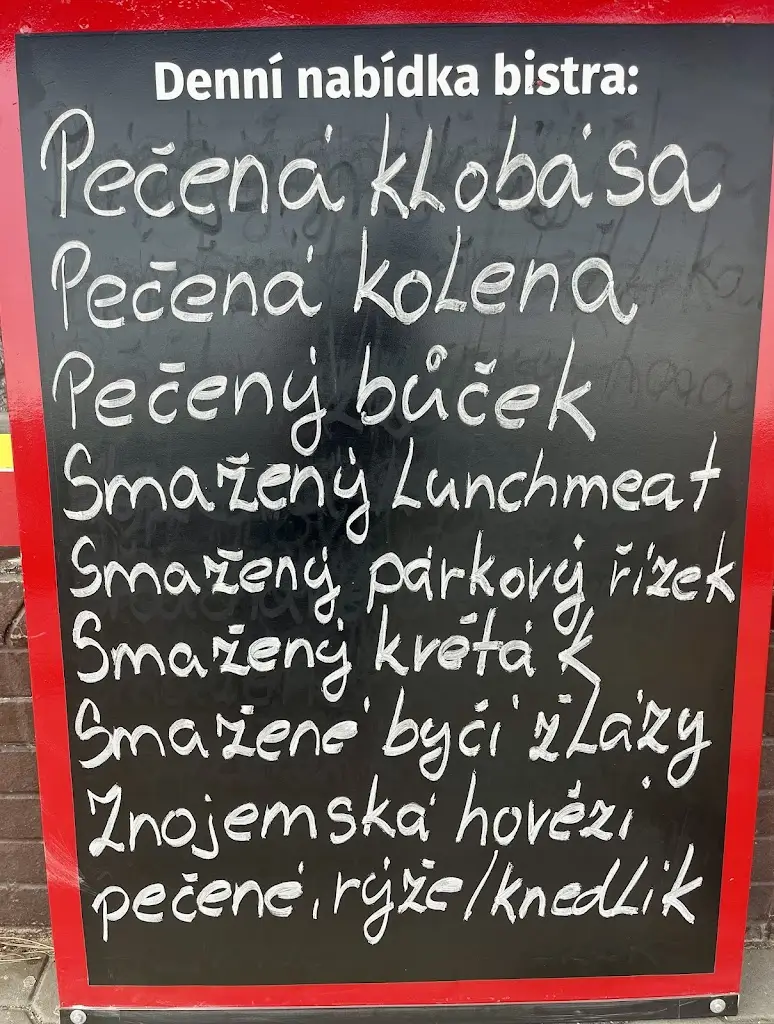 Denní nabídka bistra:
Pečená klobása
Pečená kolena
Pečený bůček
Smažený Lunchmeat
Smažený párkový řízek
Smažený květák
Smažené byčí žlázy
Znojemská hovězí
pečeně, rýže/knedlik